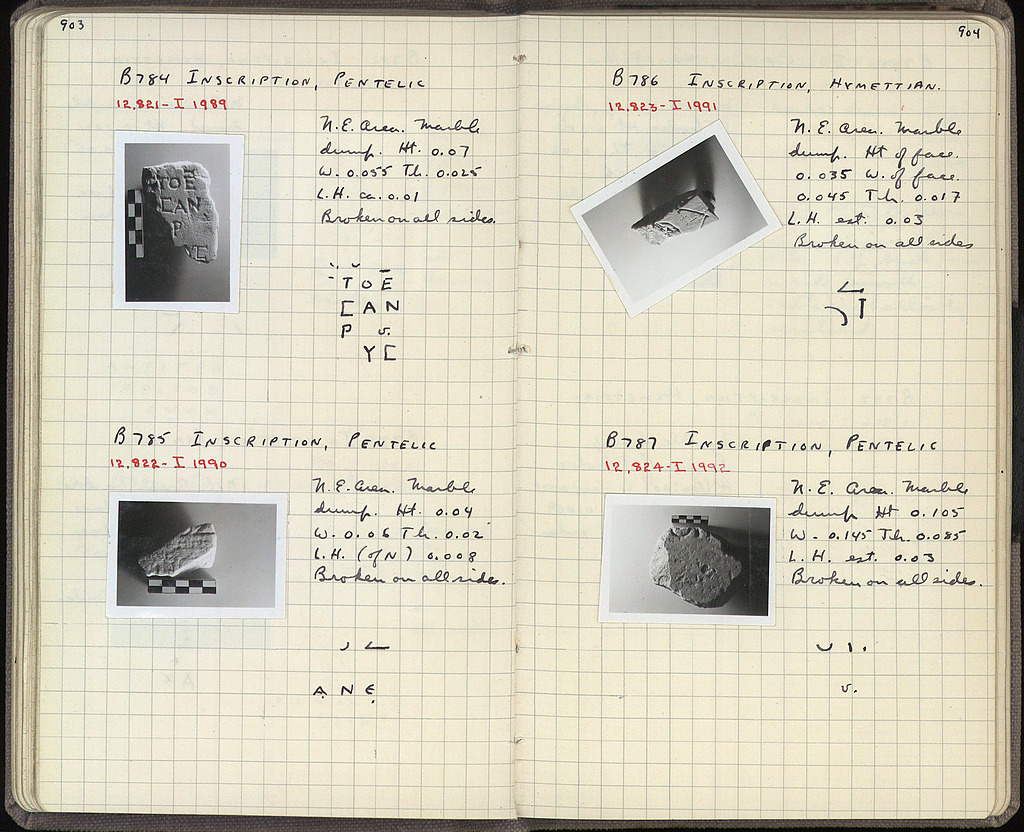 903
B784 INSCRIPTION, PENTELIC
12,821-I 1989
N.E. Area. Marble
dump. Ht. 0.07
W. 0.055 Th. 0.025
L.H. ca. 0.01
Broken on all sides.
ΤΟΕ
ΣΑΝ
Ρ v.
ΥΣ
B785 INSCRIPTION, PENTELIC
12,822-I 1990
N.E. Area. Marble
dump. Ht. 0.04
W. 0.06 Th. 0.02
L.H. (of N) 0.008
Broken on all sides.
Α Ν Ε
904
B786 INSCRIPTION, HYMETTIAN.
12,823-I 1991
N.E. Area. Marble
dump. Ht of face.
0.035 W. of face.
0.045 Th. 0.017
L.H. est. 0.03
Broken on all sides
B787 INSCRIPTION, PENTELIC
12,824-I 1992
N.E. Area. Marble
dump Ht 0.105
W- 0.145 Th. 0.085
L.H. est. 0.03
Broken on all sides.
v.